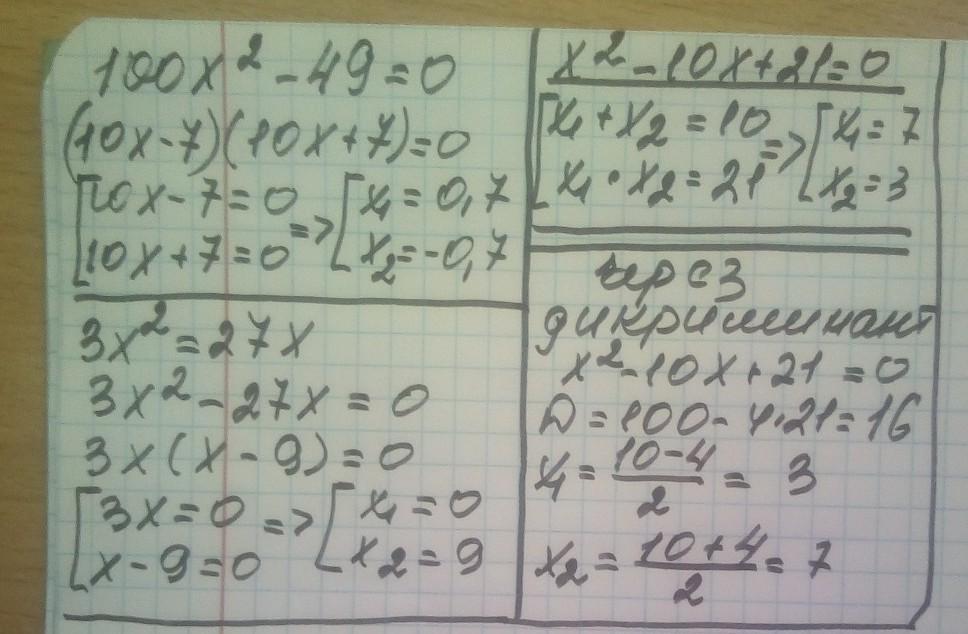 100x² - 49 = 0
(10x - 7)(10x + 7) = 0
[10x - 7 = 0 => [x₁ = 0,7
[10x + 7 = 0 => [x₂ = -0,7
3x² = 27x
3x² - 27x = 0
3x(x - 9) = 0
[3x = 0 => [x₁ = 0
[x - 9 = 0 => [x₂ = 9
x² - 10x + 21 = 0
[x₁ + x₂ = 10 => [x₁ = 7
[x₁ · x₂ = 21 => [x₂ = 3
через
дикриминант
x² - 10x + 21 = 0
D = 100 - 4·21 = 16
x₁ = (10 - 4)/2 = 3
x₂ = (10 + 4)/2 = 7